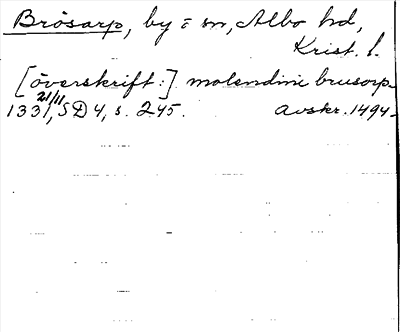 Brösarp, by i sn, Albo hd,
Krist. l.
[överskrift:] molendini brusorp
21/11
1331, SD 4, s. 245. Avskr. 1494.